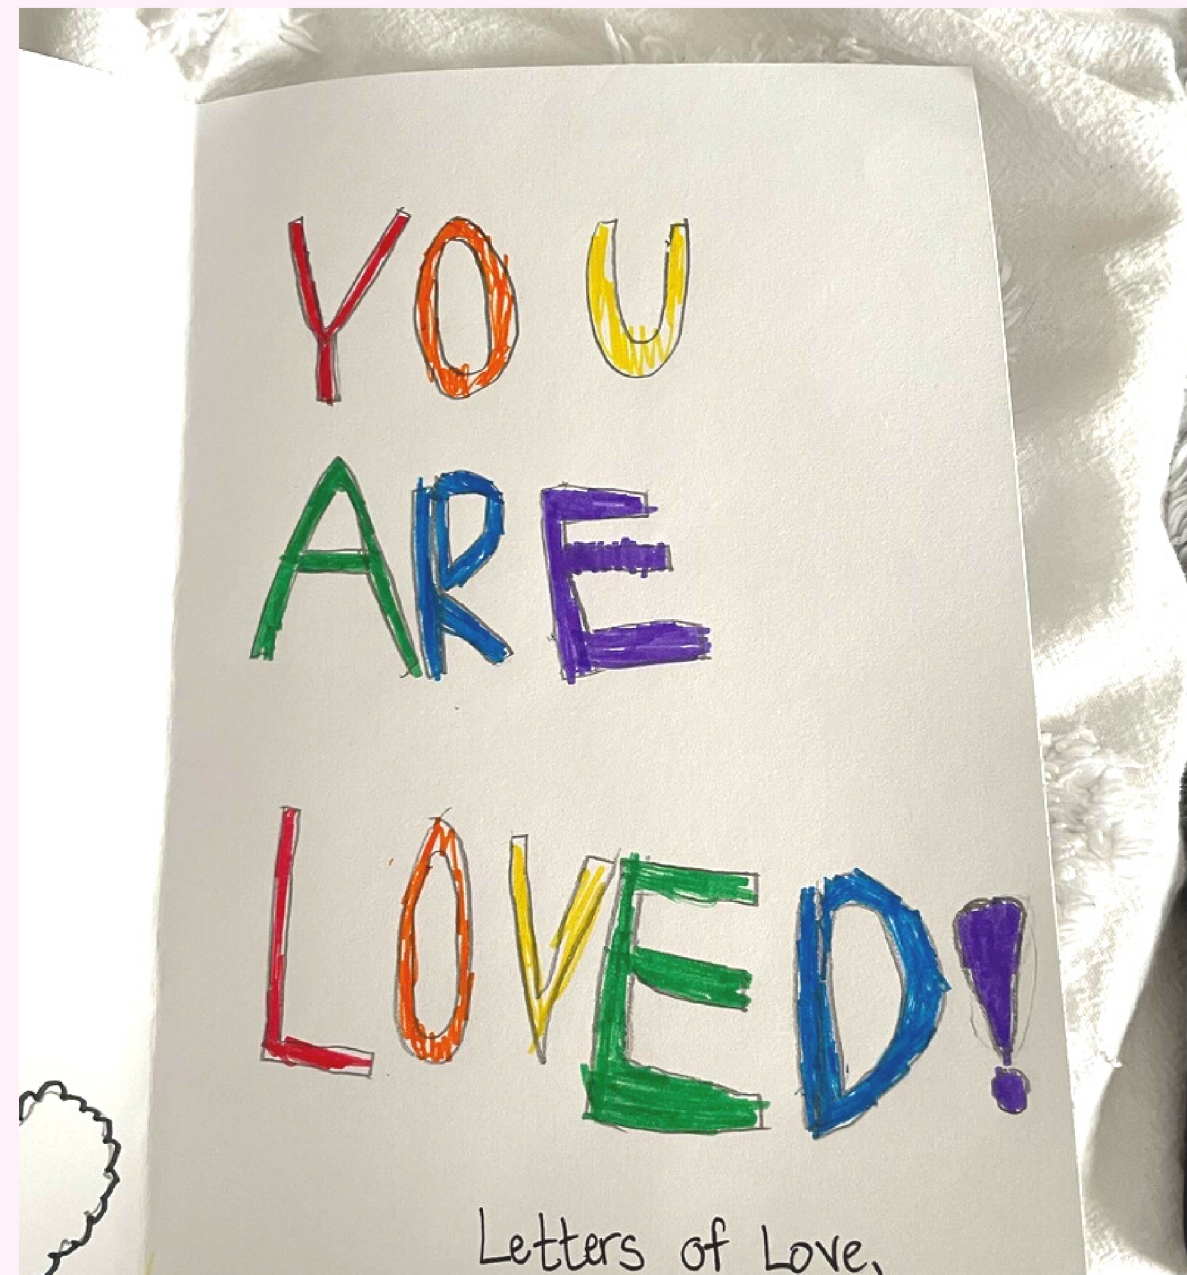 YOU
ARE
LOVED!
Letters of Love,